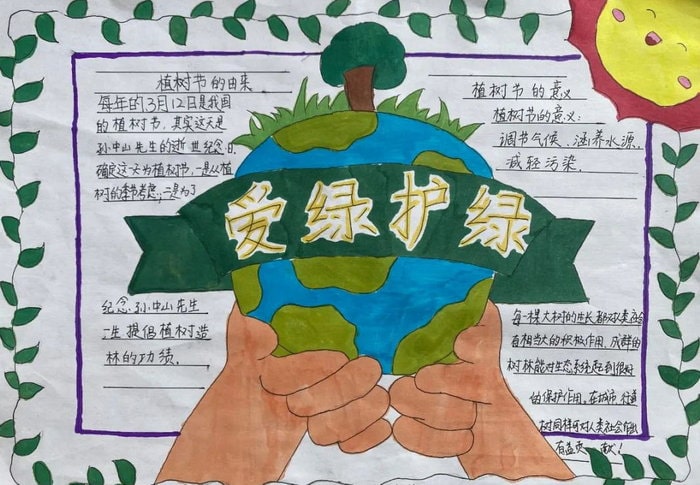 植树节的由来
每年的3月12日是我国
的植树节，其实这天是
孙中山先生的逝世纪念日，
确定这一天为植树节，一是从植
树的季节考虑；二是为了
纪念孙中山先生
一生提倡植树造
林的功绩．
爱绿护绿
植树节的意义
植树节的意义：
调节气候、涵养水源，
减轻污染．
每一棵大树的生长都对人类社会
有相当大的积极作用．成群的
树林能对生态系统起到很好
的保护作用．在城市行道
树同样可对人类社会作出
有益贡献！